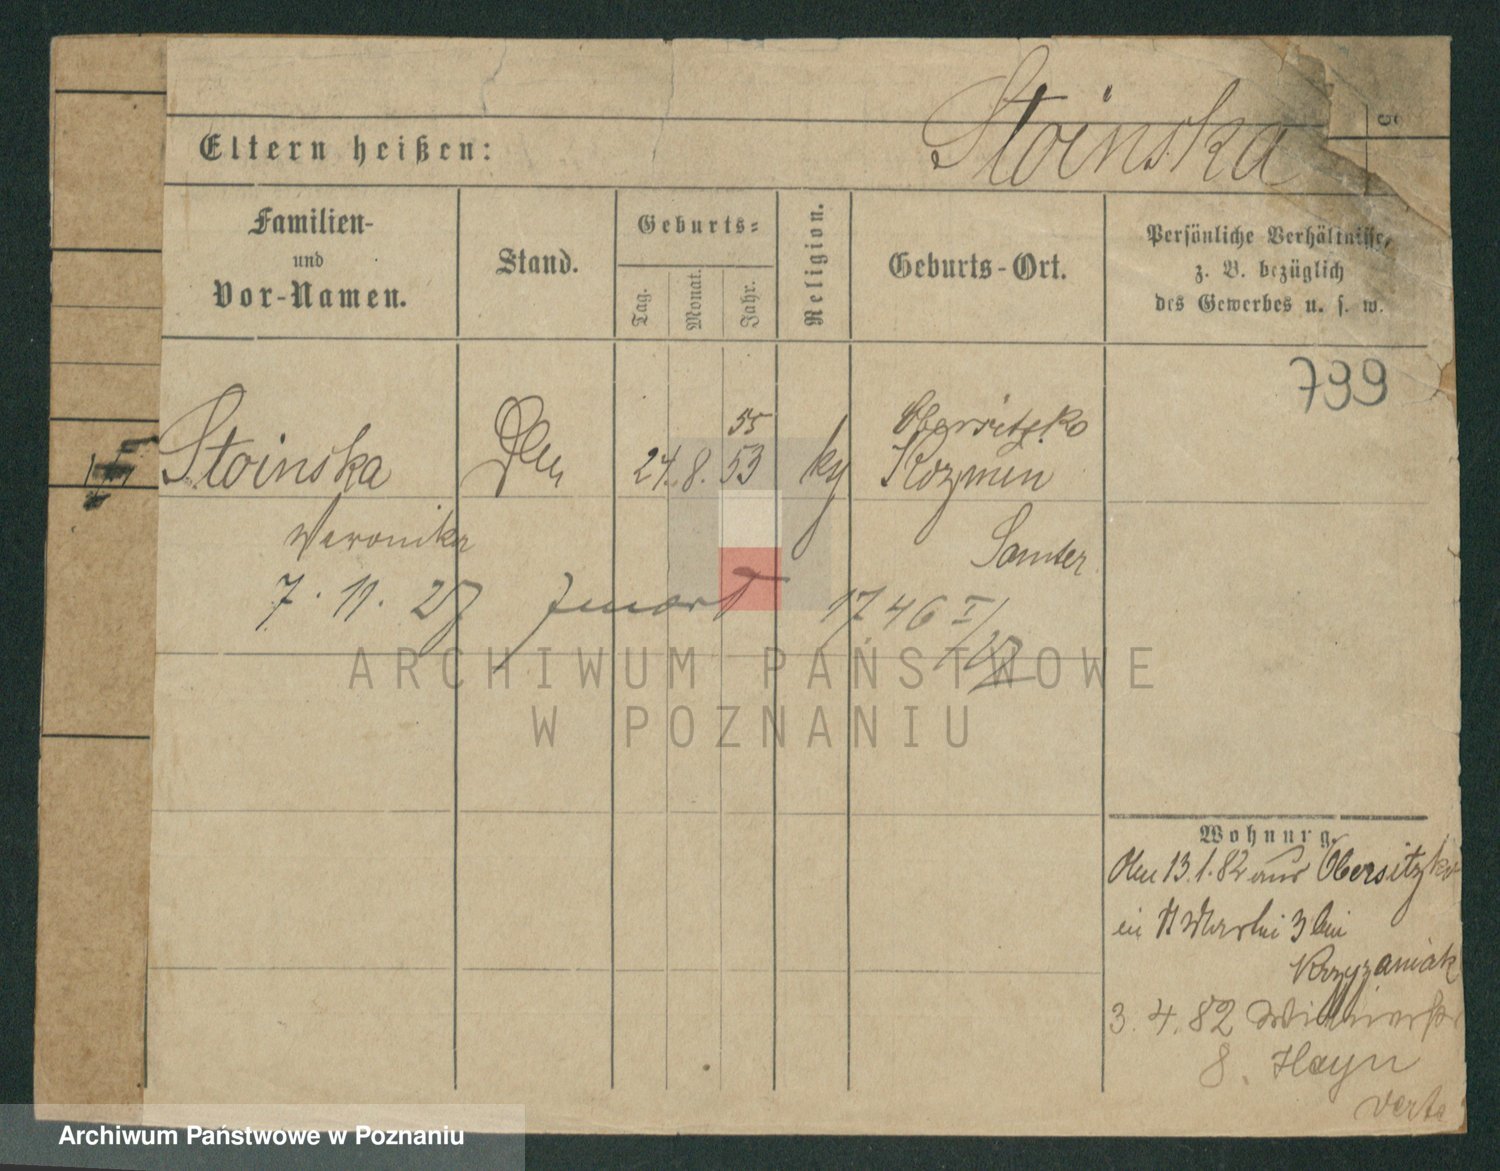 Stoinska
Eltern heißen:
Familien-
und
Vor-Namen.
Stand.
Geburts-
Tag.
Monat.
Jahr.
Religion.
Geburts-Ort.
Persönliche Verhältnisse,
z. B. bezüglich
des Gewerbes u. s. w.
799
55
Obersitzko
Stoinska
24. 8. 53
Kozmin
Veronika
Samter
7. 11. 27
1746 I/27
ARCHIWUM PAŃSTWOWE
W POZNANIU
Wohnung.
13.1.82 aus Obersitzko
in 3 bei
Krzyzaniak
3. 4. 82
8. Hayn
verte
Archiwum Państwowe w Poznaniu